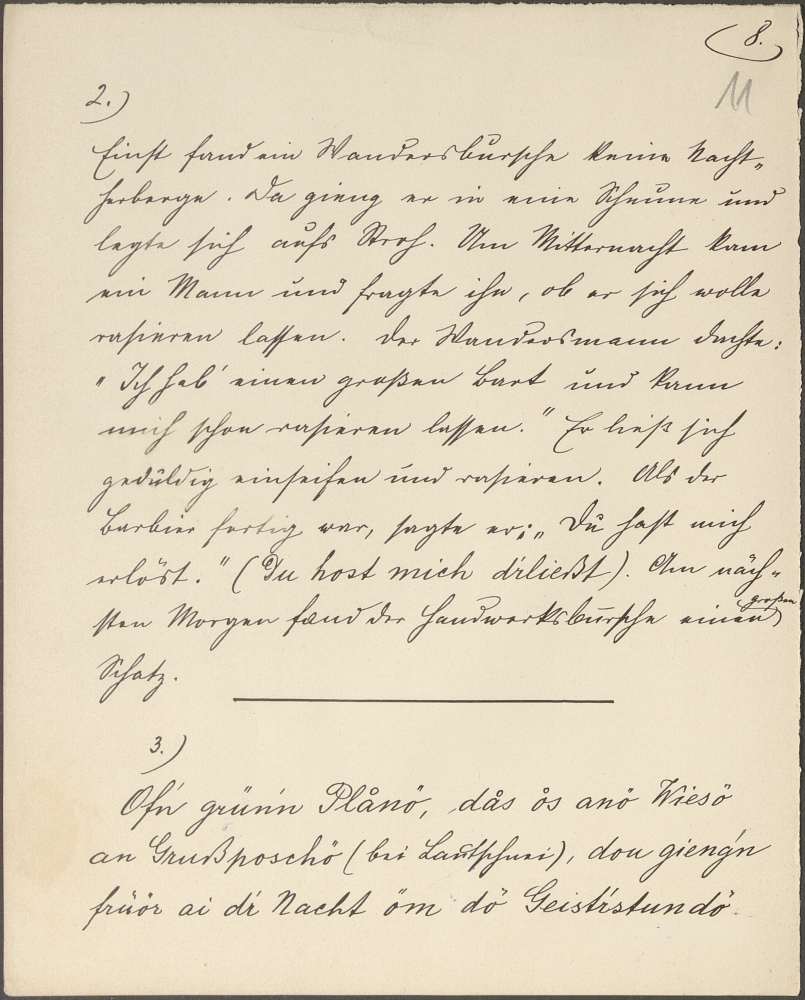 8.
11
2.)
Einst fand ein Wandersbursche keine Nacht„
herberge. Da gieng er in eine Scheune und
legte sich aufs Stroh. Um Mitternacht kam
ein Mann und fragte ihn, ob er sich wolle
rasieren lassen. Der Wandersmann dachte:
„Ich hab' einen großen Bart und kann
mich schon rasieren lassen." Er ließ sich
geduldig einseifen und rasieren. Als der
Barbier fertig war, sagte er: „Du hast mich
erlöst." (Du host mich d'rließt). Am näch„
sten Morgen fand der Handwerksbursche einen großen
Schatz.
3.)
Ofn grünn Plånö, dås ås anö Wiesö
an Grußposchö (bei Lautschnei), dou gieng'n
früör ai dr Nacht öm dö Geist'rstundö